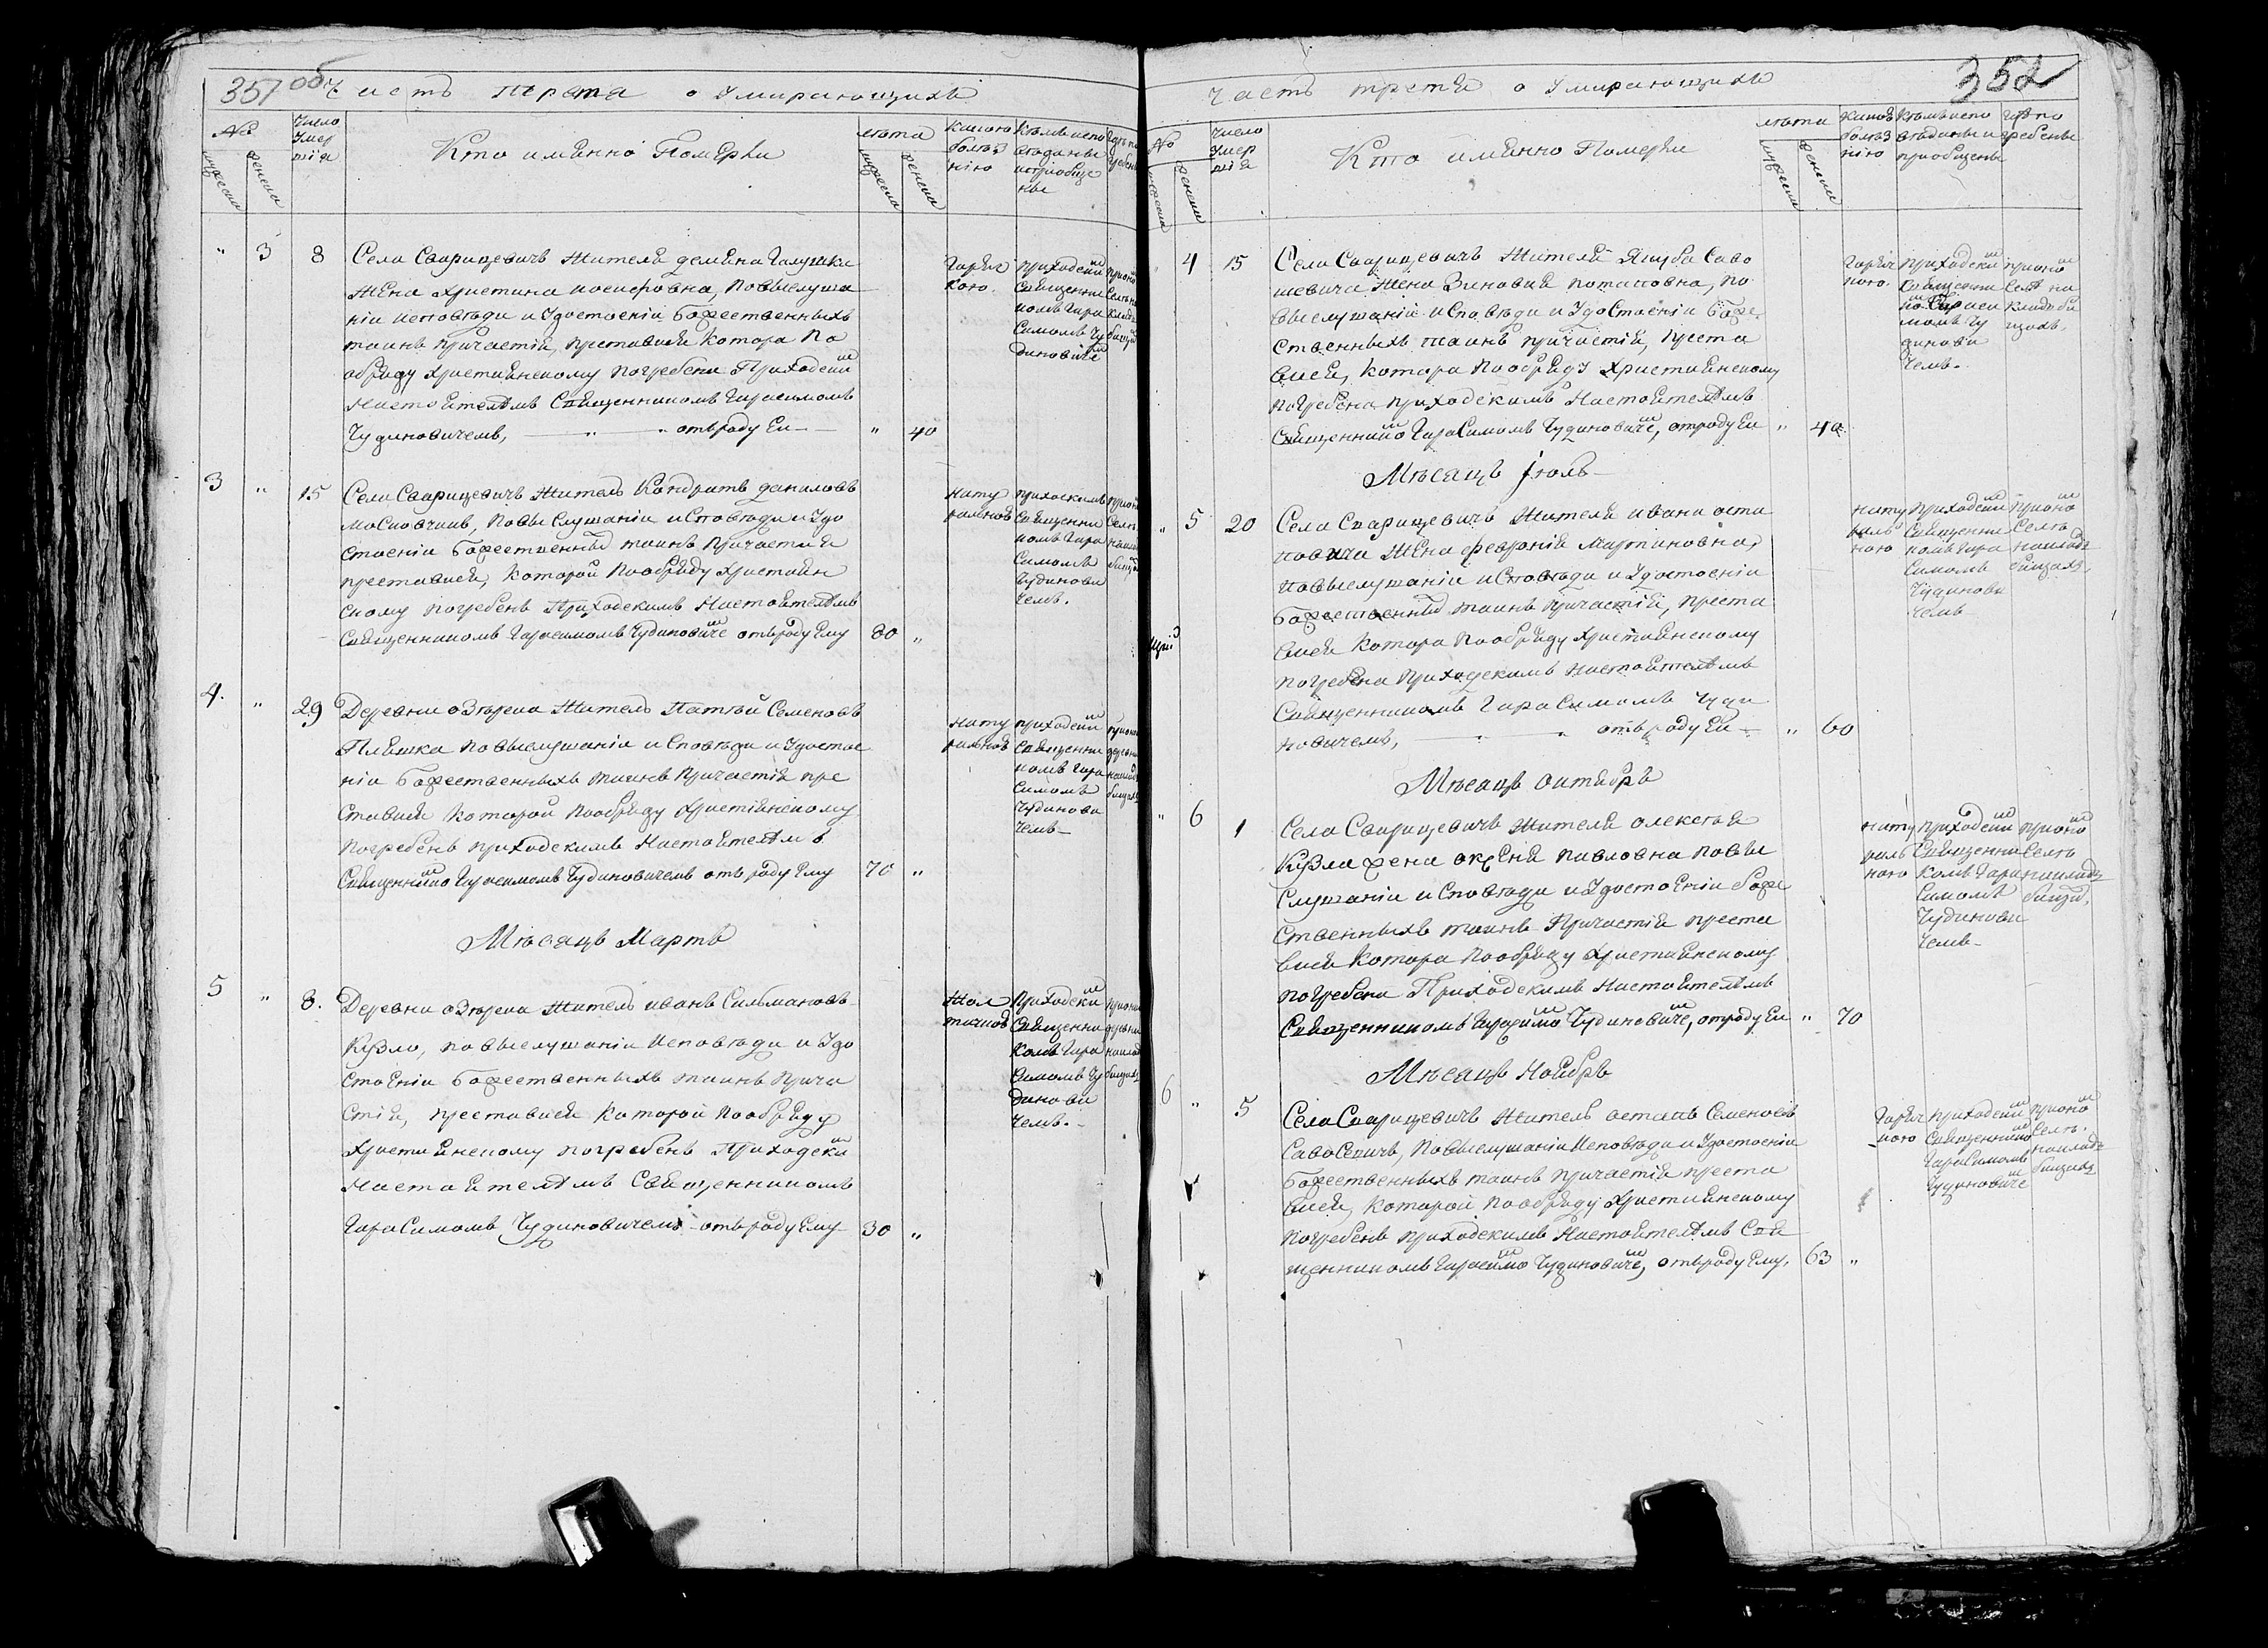 351 об
Часть третя о Умирающихъ
№
мужеска
женска
Число
Умер
шія
Кто именно Померли
лета
мужеска
женска
какою
болѣз
нію
кѣмъ испо
веданы
и приобще
ны
" 3 8 Села Сварицевичъ жителя демяна Галушки
жена Христина иосифовна, повыслуша
ніи исповѣди и Удостоеніи Божественныхъ
таинъ причастія, преставися котора По
обряду Християнскому погребена Приходски м
Настоятелемъ Священникомъ Гарасимомъ
Чудиновичемъ, — " — " отъроду Ей — " 40
Горяч
кою.
приходски м
Священни
комъ Гара
Симомъ Чу
диновиче м
3 " 15 Села Сварицевичъ житель Кондратъ даниловъ
Мосновчикъ, повы Слушаніи и Сповѣди и Удо
стоеніи Божественны х таинъ Причастия
преставися, которой пообряду Християн
скому погребенъ Приходскимъ Настоятелемъ
Священникомъ Гарасимомъ Чудиновиче м отъроду Ему 80 "
нату
ральной
прихоскимъ
Священни
комъ Гара
Симомъ
Чудинови
чемъ.
4. " 29 Деревни озѣрска житель Патѣй Семеновъ
Пляшка повыслушаніи и Сповѣди и Удостое
ніи Божественныхъ таинъ Причастія пре
ставися которой пообряду Христіянскому
погребенъ приходскимъ Настоятелемъ
Священнико м Гарасимомъ Чудиновичемъ отъ роду Ему 70 "
нату
ральной
приходски м
Священни
комъ Гара
Симомъ
Чудинови
чемъ —
Мѣсяцъ Мартъ
5 " 8. Деревни озѣрска житель иванъ Сильмановъ
Кузло, повыслушаніи Исповѣди и Удо
стоЕніи Божественныхъ таинъ Прича
стія, преставися Которой пообряду
Християнскому погребенъ Приходски м
Настоятелемъ Священникомъ
Гарасимомъ Чудиновичемъ отъроду Ему 30 "
Жол
тичкой
Приходски м
Священни
комъ Гара
Симомъ Чу
динови
чемъ. —
352
Часть третя о Умирающихъ
№
мужеска
женска
число
Умер
шія
Кто именно Померли
лѣта
мужеска
женска
какою
болѣз
нію
Кѣмъ испо
веданы и
приобщены
гдѣ по
гребены
4 15 Села Сварицевичъ жителя Якуба Саво
шевича жена Зиновия потаповна, по
выслушаніи и Сповѣди и УдоСтоеніи Боже
ственныхъ таинъ причастія, преста
вися, котора пообряду Християнскому
погребена приходскимъ Настоятелемъ
Священнико м Гарасимомъ Чудиновиче м, отроду Ей " 40
Горяч
кою.
приходски м
Священни
ко м Гараси
момъ Чу
динови
чемъ.
прионо м
Селѣ на
кладьби
щахъ.
Мѣсяцъ Іюль
" 5 20 Села Сварицевичъ жителя ивана оста
повича жена феврония Мартиновна,
повыслушаніи и Сповѣди и Удостоеніи
Божественны х таинъ причастія, преста
вися котора пообряду Християнскому
погребена приходскимъ настоятелемъ
Священникомъ Гарасимомъ Чуди
новичемъ, — " — " отъроду Ей — " 60
нату
раль
ною
приходски м
Священни
комъ Гара
Симомъ
Чудинови
чемъ
прионо м
Селѣ
накладь
бищахъ,
Мѣсяцъ октябрь
" 6 1 Села Сварицевичъ жителя олексѣя
Кузла жена оксеня Павловна повы
слушаніи и Сповѣди и УдостоЕніи боже
Ственныхъ таинъ Причастія преста
вися котора пообряду Християнскому
погребена Приходскимъ Настоятелемъ
Священникомъ Гарасимо м Чудиновиче м, отроду Ей " 70
нату
раль
ною
приходски м
Священни
комъ Гара
Симомъ
Чудинови
чемъ —
прионо м
Селѣ
накладь
бищах,
Мѣсяцъ Ноябрь
6 " 5 Села Сварицевичъ житель остапъ Семеновъ
СавоСевичъ, повыслушаніи Исповѣди и Удостоеніи
Божественныхъ таинъ причастія преста
вися, которой пообряду Християнскому
погребенъ приходскимъ Настоятелемъ Свя
щенникомъ Гарасимо м Чудиновиче м, отъроду Ему. 63 "
Горяч
кою
приходски м
Священнико м
Гарасимомъ
Чудиновиче м
прионо м
Селѣ.
накладь
бищахъ